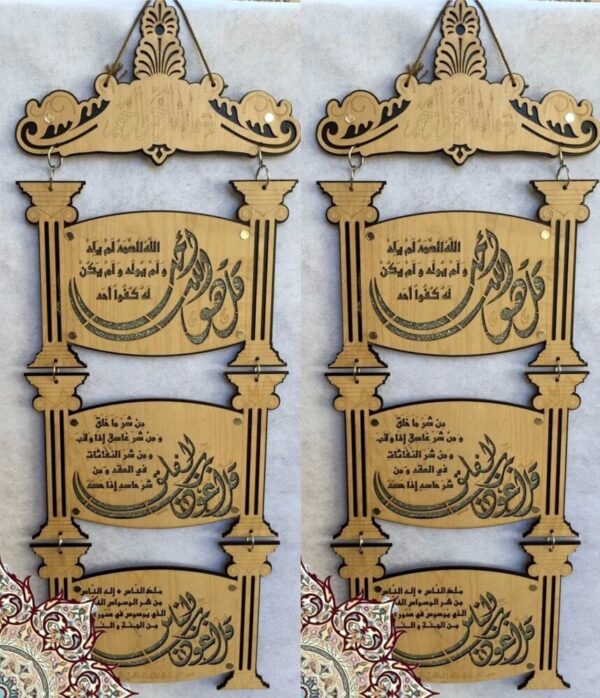 قل هو الله أحد
الله الصمد لم يلد
و لم يولد و لم يكن
له كفوا أحد
قل أعوذ برب الفلق
من شر ما خلق
و من شر غاسق إذا وقب
و من شر النفاثات
في العقد و من
شر حاسد إذا حسد
قل أعوذ برب الناس
ملك الناس * إله الناس
من شر الوسواس
الذي يوسوس في صدور
من الجنة و
قل هو الله أحد
الله الصمد لم يلد
و لم يولد و لم يكن
له كفوا أحد
قل أعوذ برب الفلق
من شر ما خلق
و من شر غاسق إذا وقب
و من شر النفاثات
في العقد و من
شر حاسد إذا حسد
قل أعوذ برب الناس
ملك الناس * إله الناس
من شر الوسواس
الذي يوسوس في صدور
من الجنة و